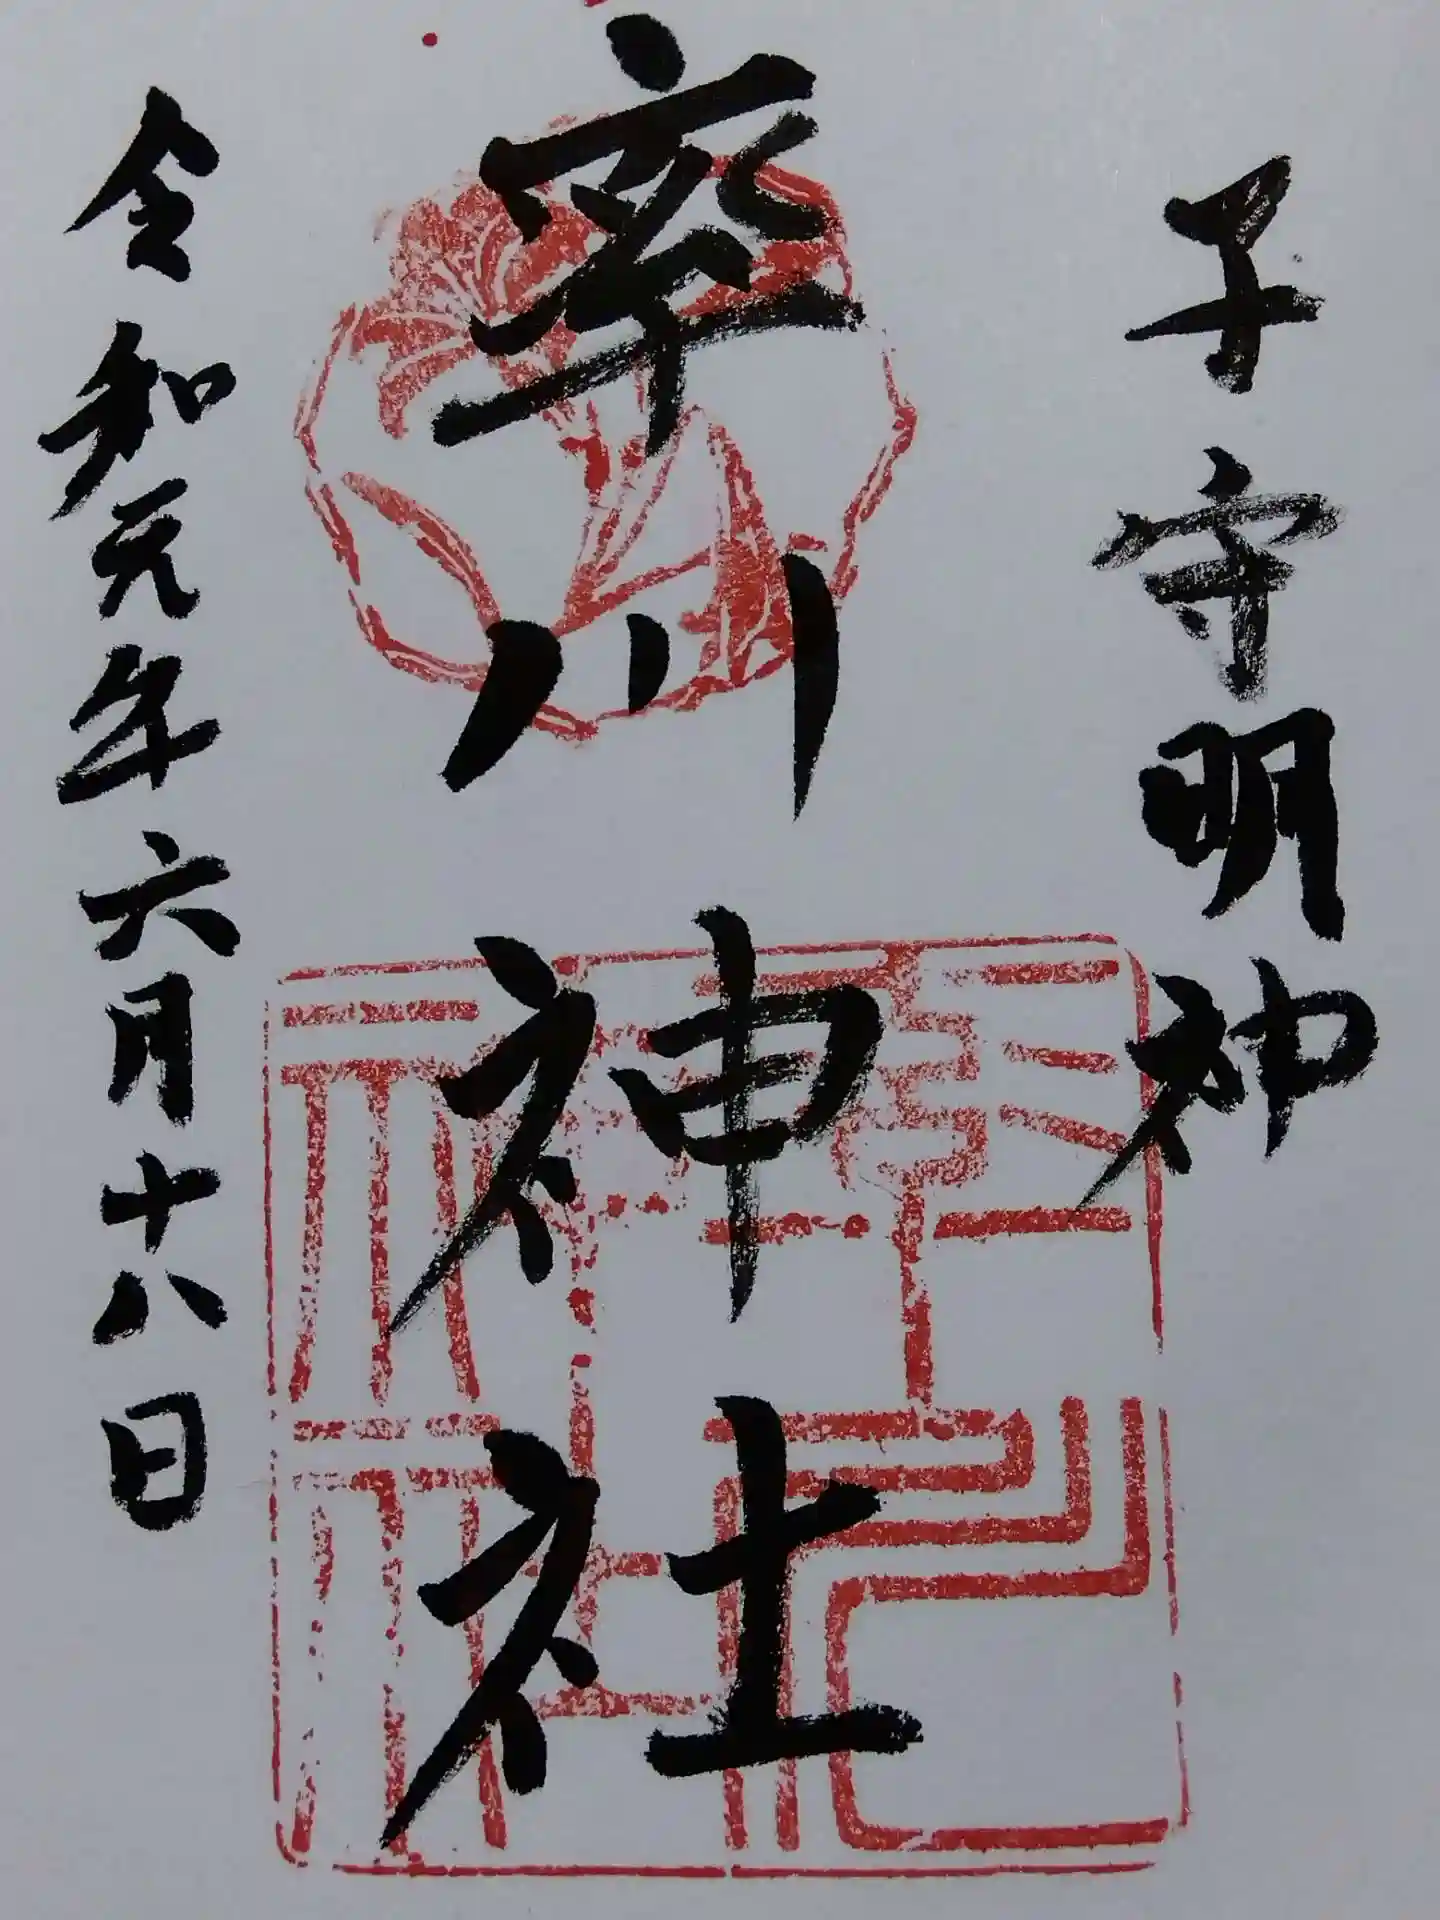 子守明神
率川神社
令和元年六月十八日